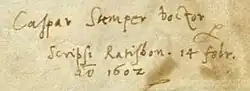 Caspar Stemper Doctor
Scripsi Ratisbon. 14 Febr.
Aõ 1602